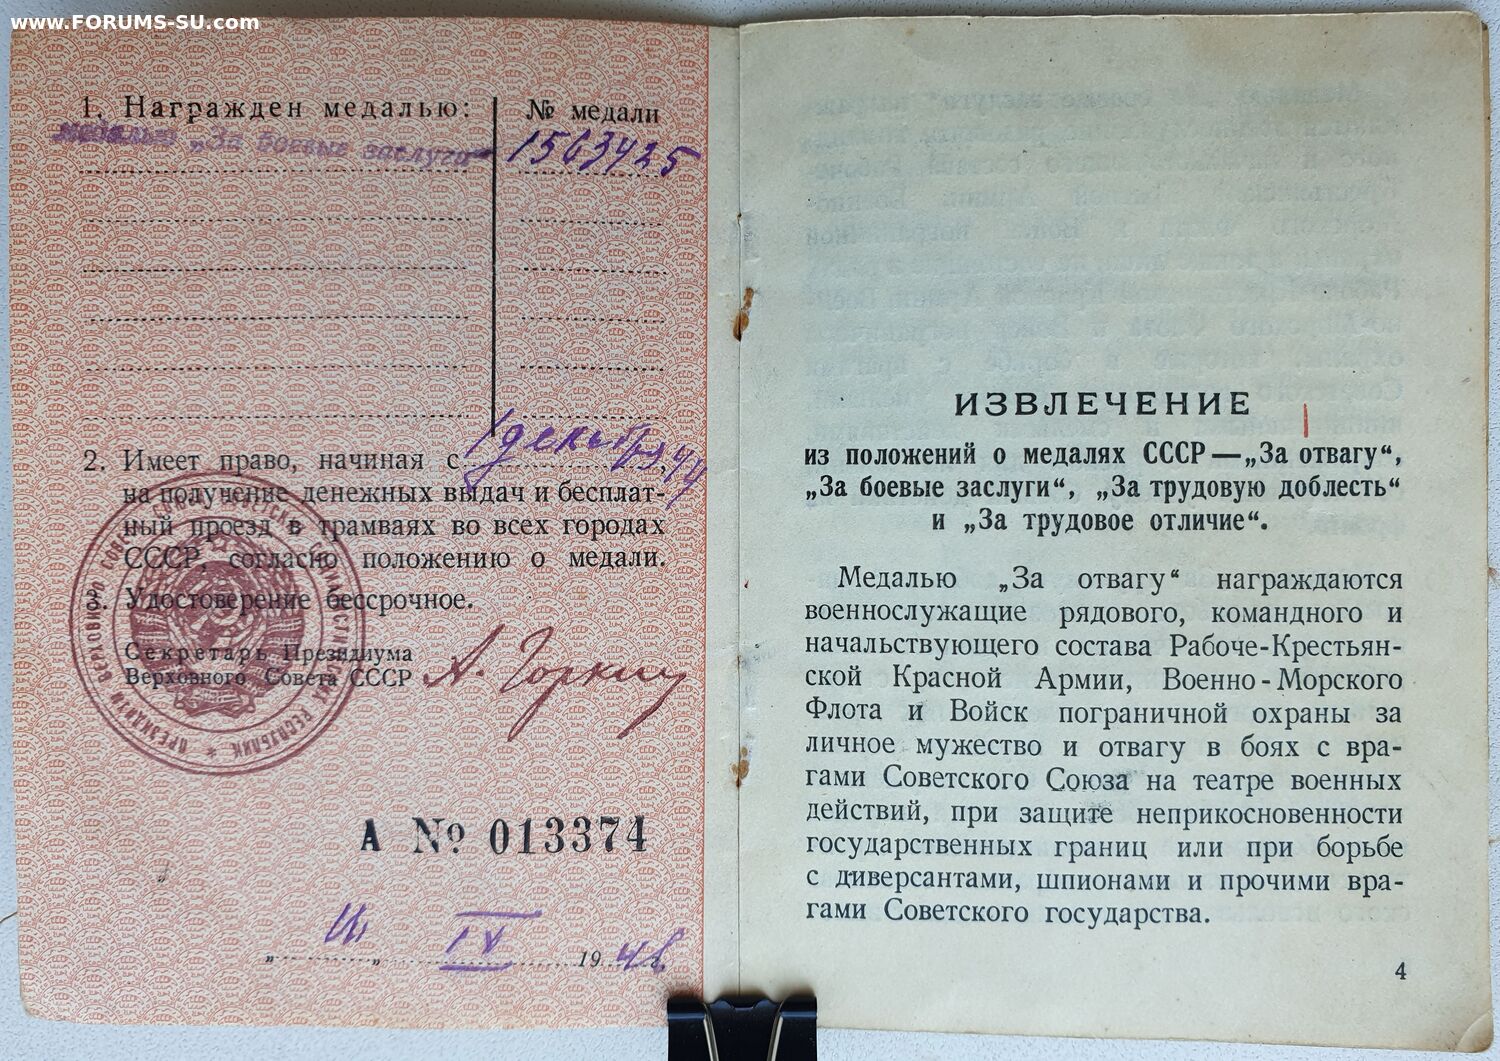 www.FORUMS-SU.com
1. Награжден медалью:
№ медали
медалью „За боевые заслуги“
1563425
2. Имеет право, начиная с 1 декабря 44
на получение денежных выдач и бесплат-
ный проезд в трамваях во всех городах
СССР, согласно положению о медали.
3. Удостоверение бессрочное.
Секретарь Президиума
Верховного Совета СССР
А. Горкин
А № 013374
„ “ IV 19 г.
ИЗВЛЕЧЕНИЕ
из положений о медалях СССР—„За отвагу“,
„За боевые заслуги“, „За трудовую доблесть“
и „За трудовое отличие“.
Медалью „За отвагу“ награждаются
военнослужащие рядового, командного и
начальствующего состава Рабоче-Крестьян-
ской Красной Армии, Военно-Морского
Флота и Войск пограничной охраны за
личное мужество и отвагу в боях с вра-
гами Советского Союза на театре военных
действий, при защите неприкосновенности
государственных границ или при борьбе
с диверсантами, шпионами и прочими вра-
гами Советского государства.
4